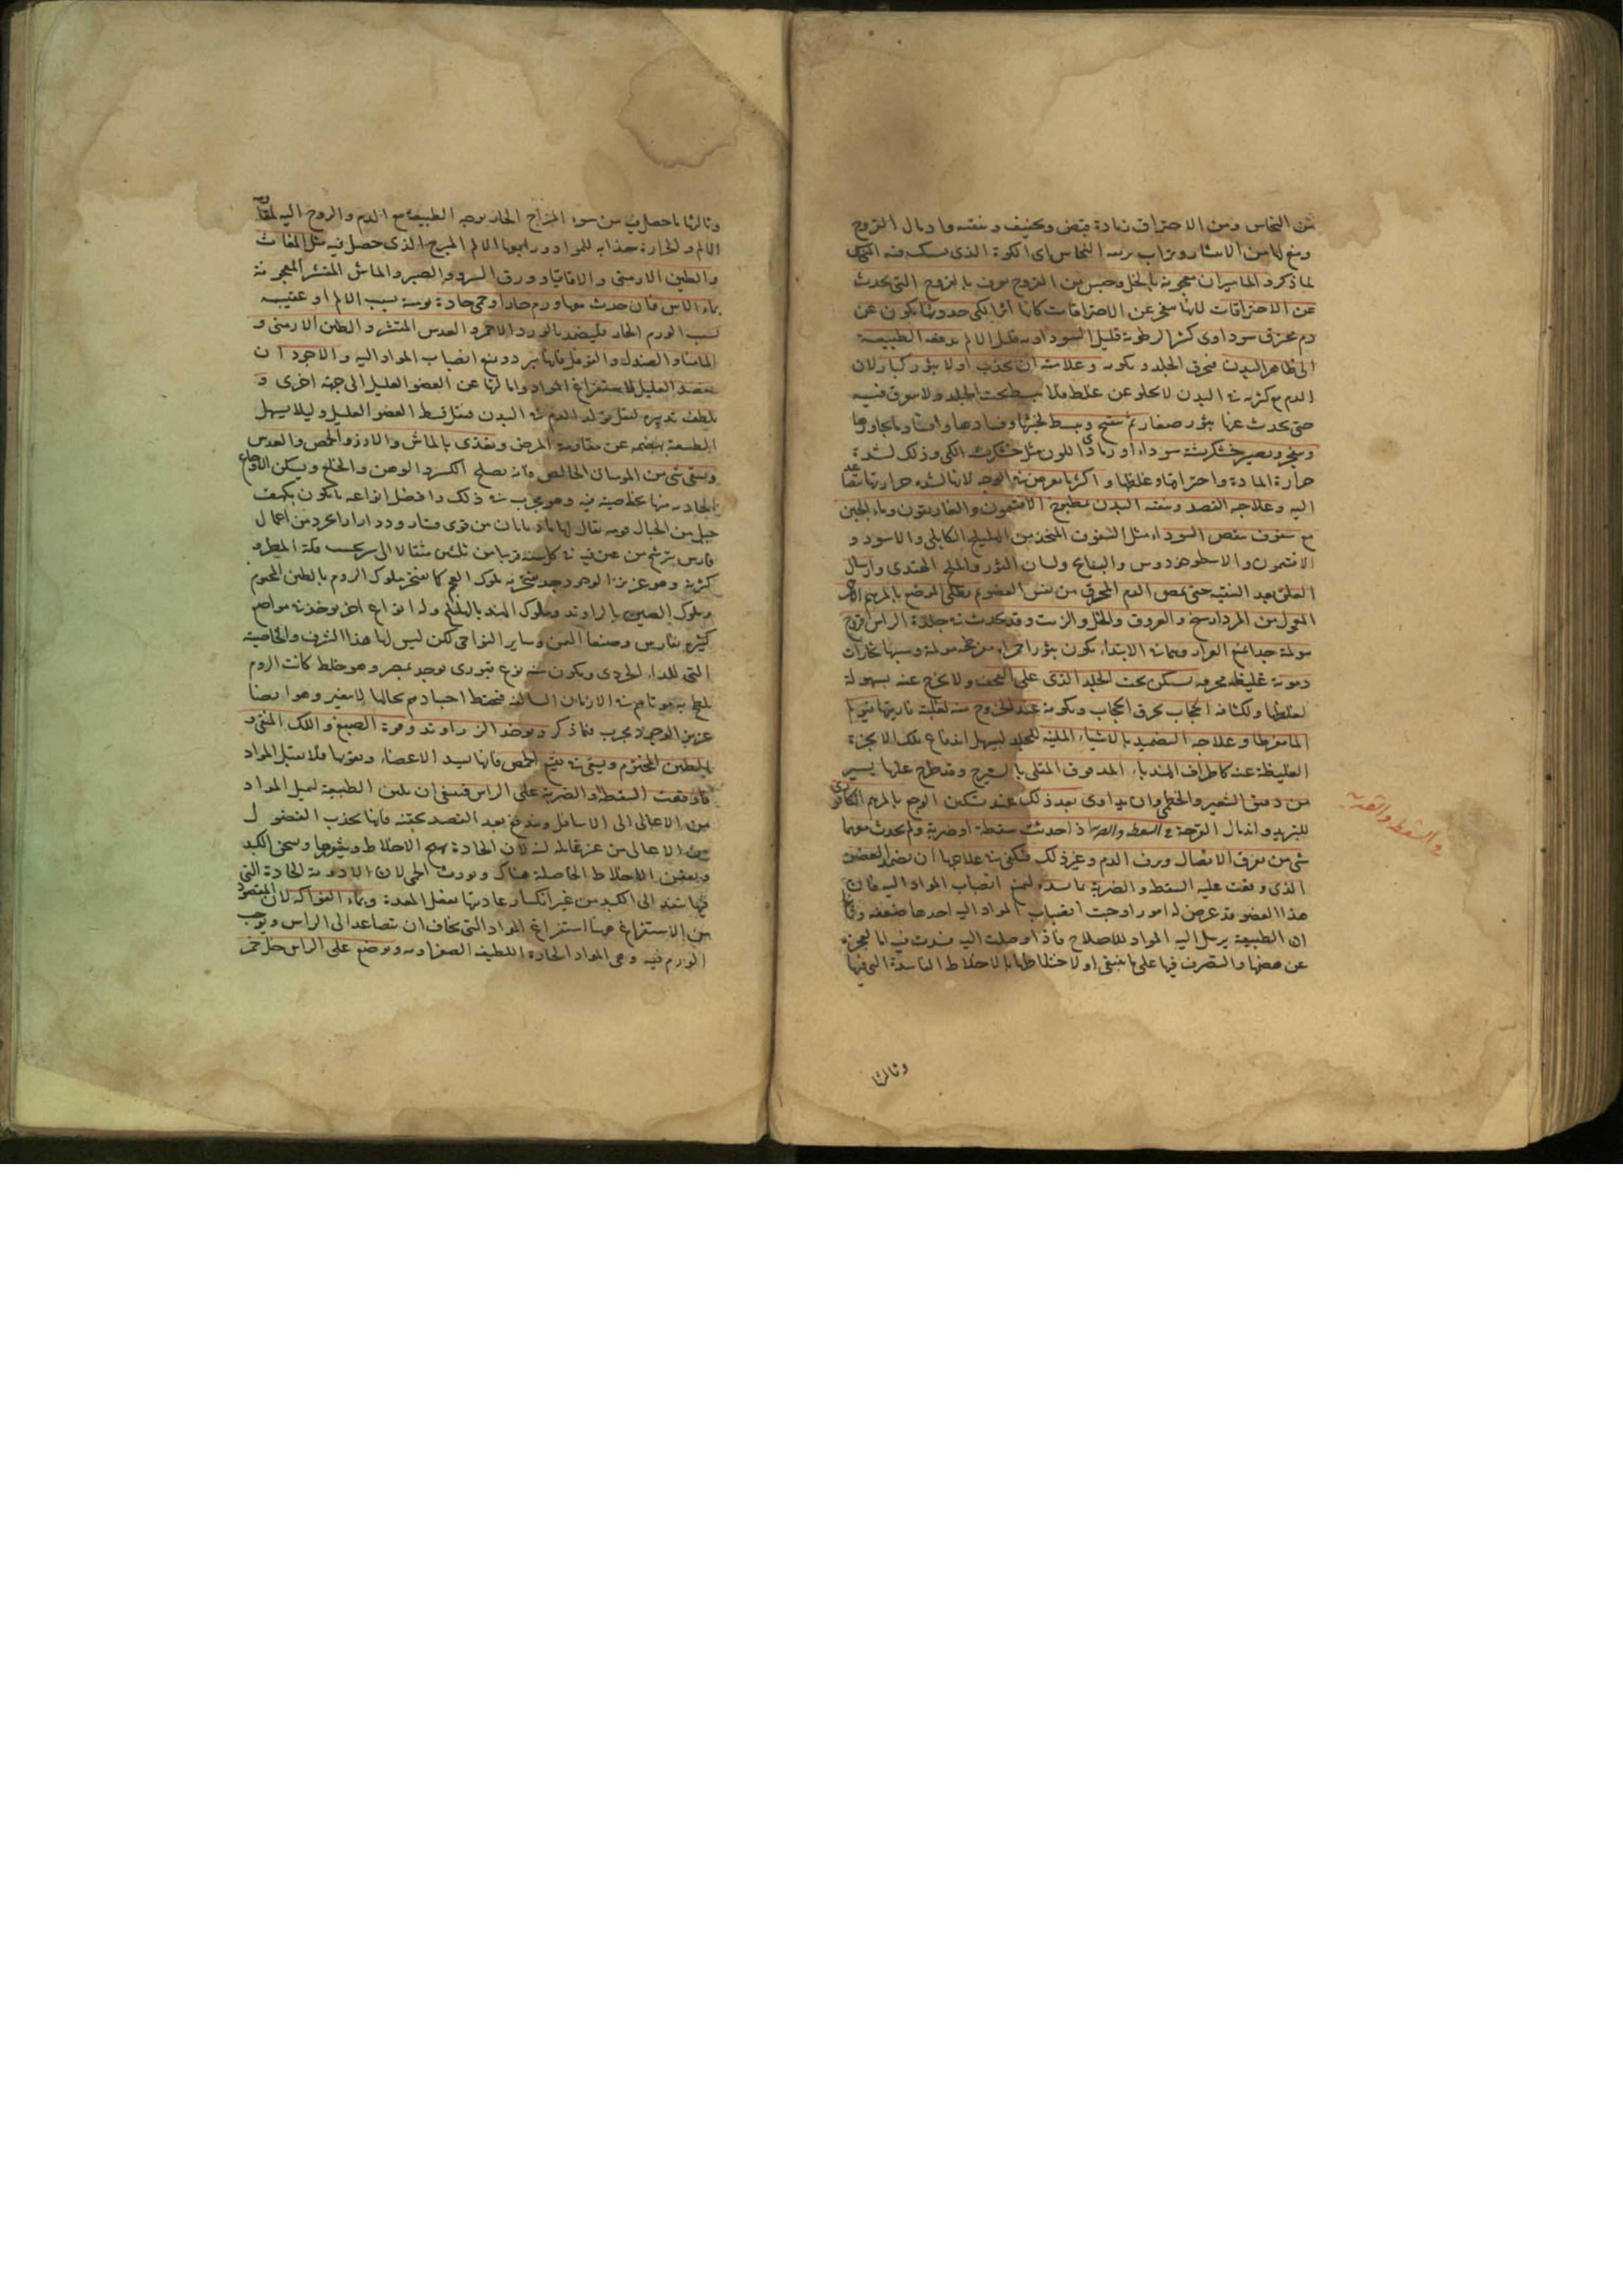 من النحاس ومن الاحتراق زيادة قبض وتجفيف وتنقية وادمال القروح
ومنع لها من الانتشار وتراب بوتقة النحاس اى الكوة الذى يسبك فيه
لما ذكر والماميران معجونة بالخل وجنس من القروح يعرف بالقروح التى تحدث
عن الاحتراقات لانها عن الاحتراقات كانها اثر الكى حدوثها يكون عن
دم محترق سوداوى كثير الرطوبة قليل السوداوية الطبيعة
الى ظاهر البدن فيحرق الجلد ويكويه وعلامته ان تحدث اولا بثور كبار لان
الدم مع كثرته فى البدن لا يخلو عن غلظ فلا ينبسط تحت الجلد ولا يتفرق فيه
حتى يحدث عنها بثور صغار ثم تتفتح وينبسط لخبثها وفسادها وافسادها ما يجاورها
ويصير خشكريشة سوداء او رمادى اللون مثل خشكريشة الكى وذلك لشدة
حرارة المادة واحتراقها وغلظها واكثر ما يعرض فى الوجه لانها لشدة حرارتها
اليه وعلاجه الفصد وتنقية البدن بمطبوخ الافتيمون والغاريقون وماء الجبن
مع سفوف ينقص السوداء مثل السفوف المتخذ من الهليلج الكابلى والاسود و
الافتيمون والاسطوخودوس والبسفايج ولسان الثور والملح الهندى وارسال
العلق بعد التنقية حتى يمص الدم المحترق من نفس العضو ثم يطلى الموضع بالمرهم
المعمول من المرداسنج والعروق والخل والزيت وقد يحدث فى جلدة الراس قروح
مولمة جدا تمنع القرار وهى فى الابتداء يكون بثورا حمراء مولمة وسببها بخارات
دموية غليظة محرقة تسكن تحت الجلد الذى على القحف ولا يخرج عنه بسهولة
لغلظها ولكثافة الحجاب يحرق الحجاب ويكويه عند الخروج منه لغلبة ناريتها فيولم
الما مفرطا وعلاجه التضميد بالاشياء الملينة للجلد ليسهل اندفاع تلك الابخرة
الغليظة عنه كاطراف الهندباء المدقوق المقلى بالشيرج وقد طرح عليها يسير
من دقيق الشعير والخطمى وان يداوى بعد ذلك عند تسكين الوجع بالمرهم الكافورى
للتبريد واندمال القرحة فى السقطة والضربة اذا حدثت سقطة او ضربة ولم يحدث معهما
شى من تفرق الاتصال ونزف الدم وغير ذلك فيكفى فى علاجها ان يضمد العضو
الذى وقعت عليه السقطة والضربة بما يسدد ليمنع انصباب المواد اليه فان
هذا العضو قد عرض له امور اوجبت انصباب المواد اليه احدها ضعفه وثانيها
ان الطبيعة يرسل اليه المواد للاصلاح فاذا وصلت اليه فسدت فيه اما لعجزه
عن هضمها والتصرف فيها على ما ينبغى او لاختلاطها بالاخلاط الفاسدة التى فيها
وثالثها
فى السقطة والضربة
وثالثها ما حصل فيه من سوء المزاج الحار بوجه الطبيعة مع الدم والروح اليه لمقاومة
الالم والحرارة جذابة للمواد ورابعها الالم المبرح الذى حصل فيه مثل المغاث
والطين الارمنى والاقاقيا وورق السرو والصبر والماش المقشر المعجونة
بماء الاس فان حدث معها ورم حار او حمى حادة يومية بسبب الالم او عفنية
بسبب الورم الحار فليضمد بالورد الاحمر والعدس المقشر والطين الارمنى و
الماميثا والصندل والفوفل فانها تبرد وتمنع انصباب المواد اليه والاجود ان
يفصد العليل لاستفراغ المواد وامالتها عن العضو العليل الى جهة اخرى و
يلطف تدبيره ليقل تولد الدم فى البدن فيقل قسط العضو العليل وليلا يسهل
الطبيعة بهضمه عن مقاومة المرض ويغذى بالماش والارز والحمص والعدس
ويسقى شى من الموميان الخالص فانه يصلح الكسر والوهن والخلع ويسكن الاوجاع
الحادثة منها بخاصية فيه وهو مجرب فى ذلك وافضل انواعه ما يكون بكهف
جبل من الجبال قرية يقال لها من قرى دارابجرد من اعمال
فارس يترشح من عين فيه فى كل سنة قريبا من ثلثين مثقالا الى بحسب قلة المطر و
كثرته وهو عزيز الوجود جدا يفتخر به ملوك العجم كما يفتخر ملوك الروم بالطين المختوم
وملوك الصين بالراوند وملوك الهند بالهليلج وله انواع اخر يوخذ فى مواضع
كثيرة بفارس وصنعا اليمن وساير النواحى لكن ليس لها هذا الشرف والخاصية
التى ويكون منه نوع قبورى يوجد بمصر وهو خلط كانت الروم
يلطخ به موتاهم فى الازمان السالفة فيحفظ اجسادهم بحالها لا يتغير وهو ايضا
عزيز الوجود مجرب فيما ذكر ويوخذ الراوند وفوة الصبغ واللك المنقى و
الطين المختوم ويسقى فى نقيع الحمص فانها يسدد الاعضاء ويقويها فلا يقبل المواد
فان وقعت السقطة والضربة على الراس فينبغى ان يلين الطبيعة لميل المواد
من الاعالى الى الاسافل ويندفع بعد الفصد بحقنة فانها يجذب الفضول
من الاعالى من غير لان الحادة يهيج الاخلاط ويثورها ويسخن الكبد
ويعفن الاخلاط الحاصلة هناك ويورث الحمى لان الادوية الحادة التى
فيها تنفذ الى الكبد من غير انكسار عاديتها بفعل المعدة وبماء الفواكه لان المقصود
من الاستفراغ هنا استفراغ المواد التى يخاف ان تتصاعد الى الراس ويوجب
الورم فيه وهى المواد الحادة اللطيفة الصفراوية ويوضع على الراس خل خمر